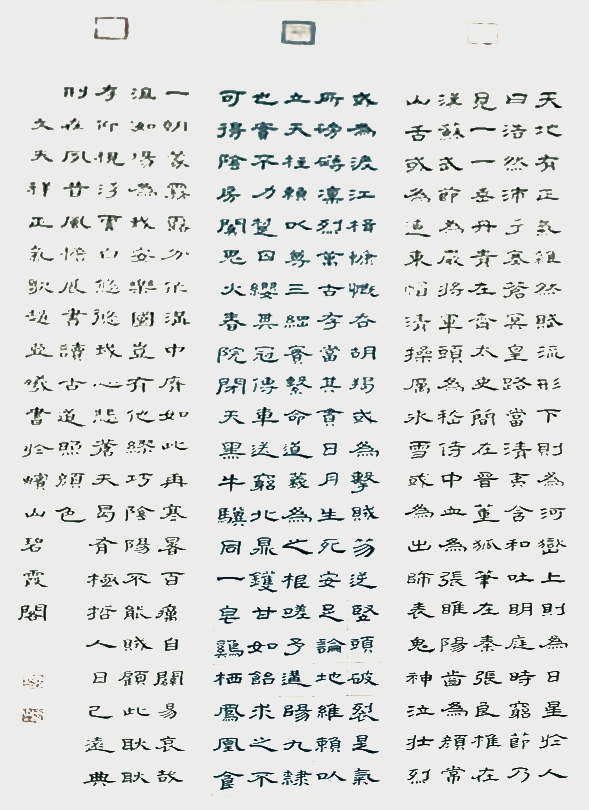 天地有正氣雜然賦流形下則為河嶽上則為日星於人
曰浩然沛乎塞蒼冥皇路當清夷含和吐明庭時窮節乃
見一一垂丹青在齊太史簡在晉董狐筆在秦張良椎在
漢蘇武節為嚴將軍頭為嵇侍中血為張睢陽齒為顏常
山舌或為遼東帽清操厲冰雪或為出師表鬼神泣壯烈
或為渡江楫慷慨吞胡羯或為擊賊笏逆豎頭破裂是氣
所磅礴凜烈萬古存當其貫日月生死安足論地維賴以
立天柱賴以尊三綱實繫命道義為之根嗟予遘陽九隸
也實不力楚囚纓其冠傳車送窮北鼎鑊甘如飴求之不
可得陰房闃鬼火春院閉天黑牛驥同一皂雞栖鳳凰食
一朝蒙霧露分作溝中瘠如此再寒暑百癘自闢易哀哉
沮洳場為我安樂國豈有他繆巧陰陽不能賊顧此耿耿
存仰視浮雲白悠悠我心悲蒼天曷有極哲人日已遠典
刑在夙昔風檐展書讀古道照顏色
文天祥正氣歌書於蠙山碧霞閣